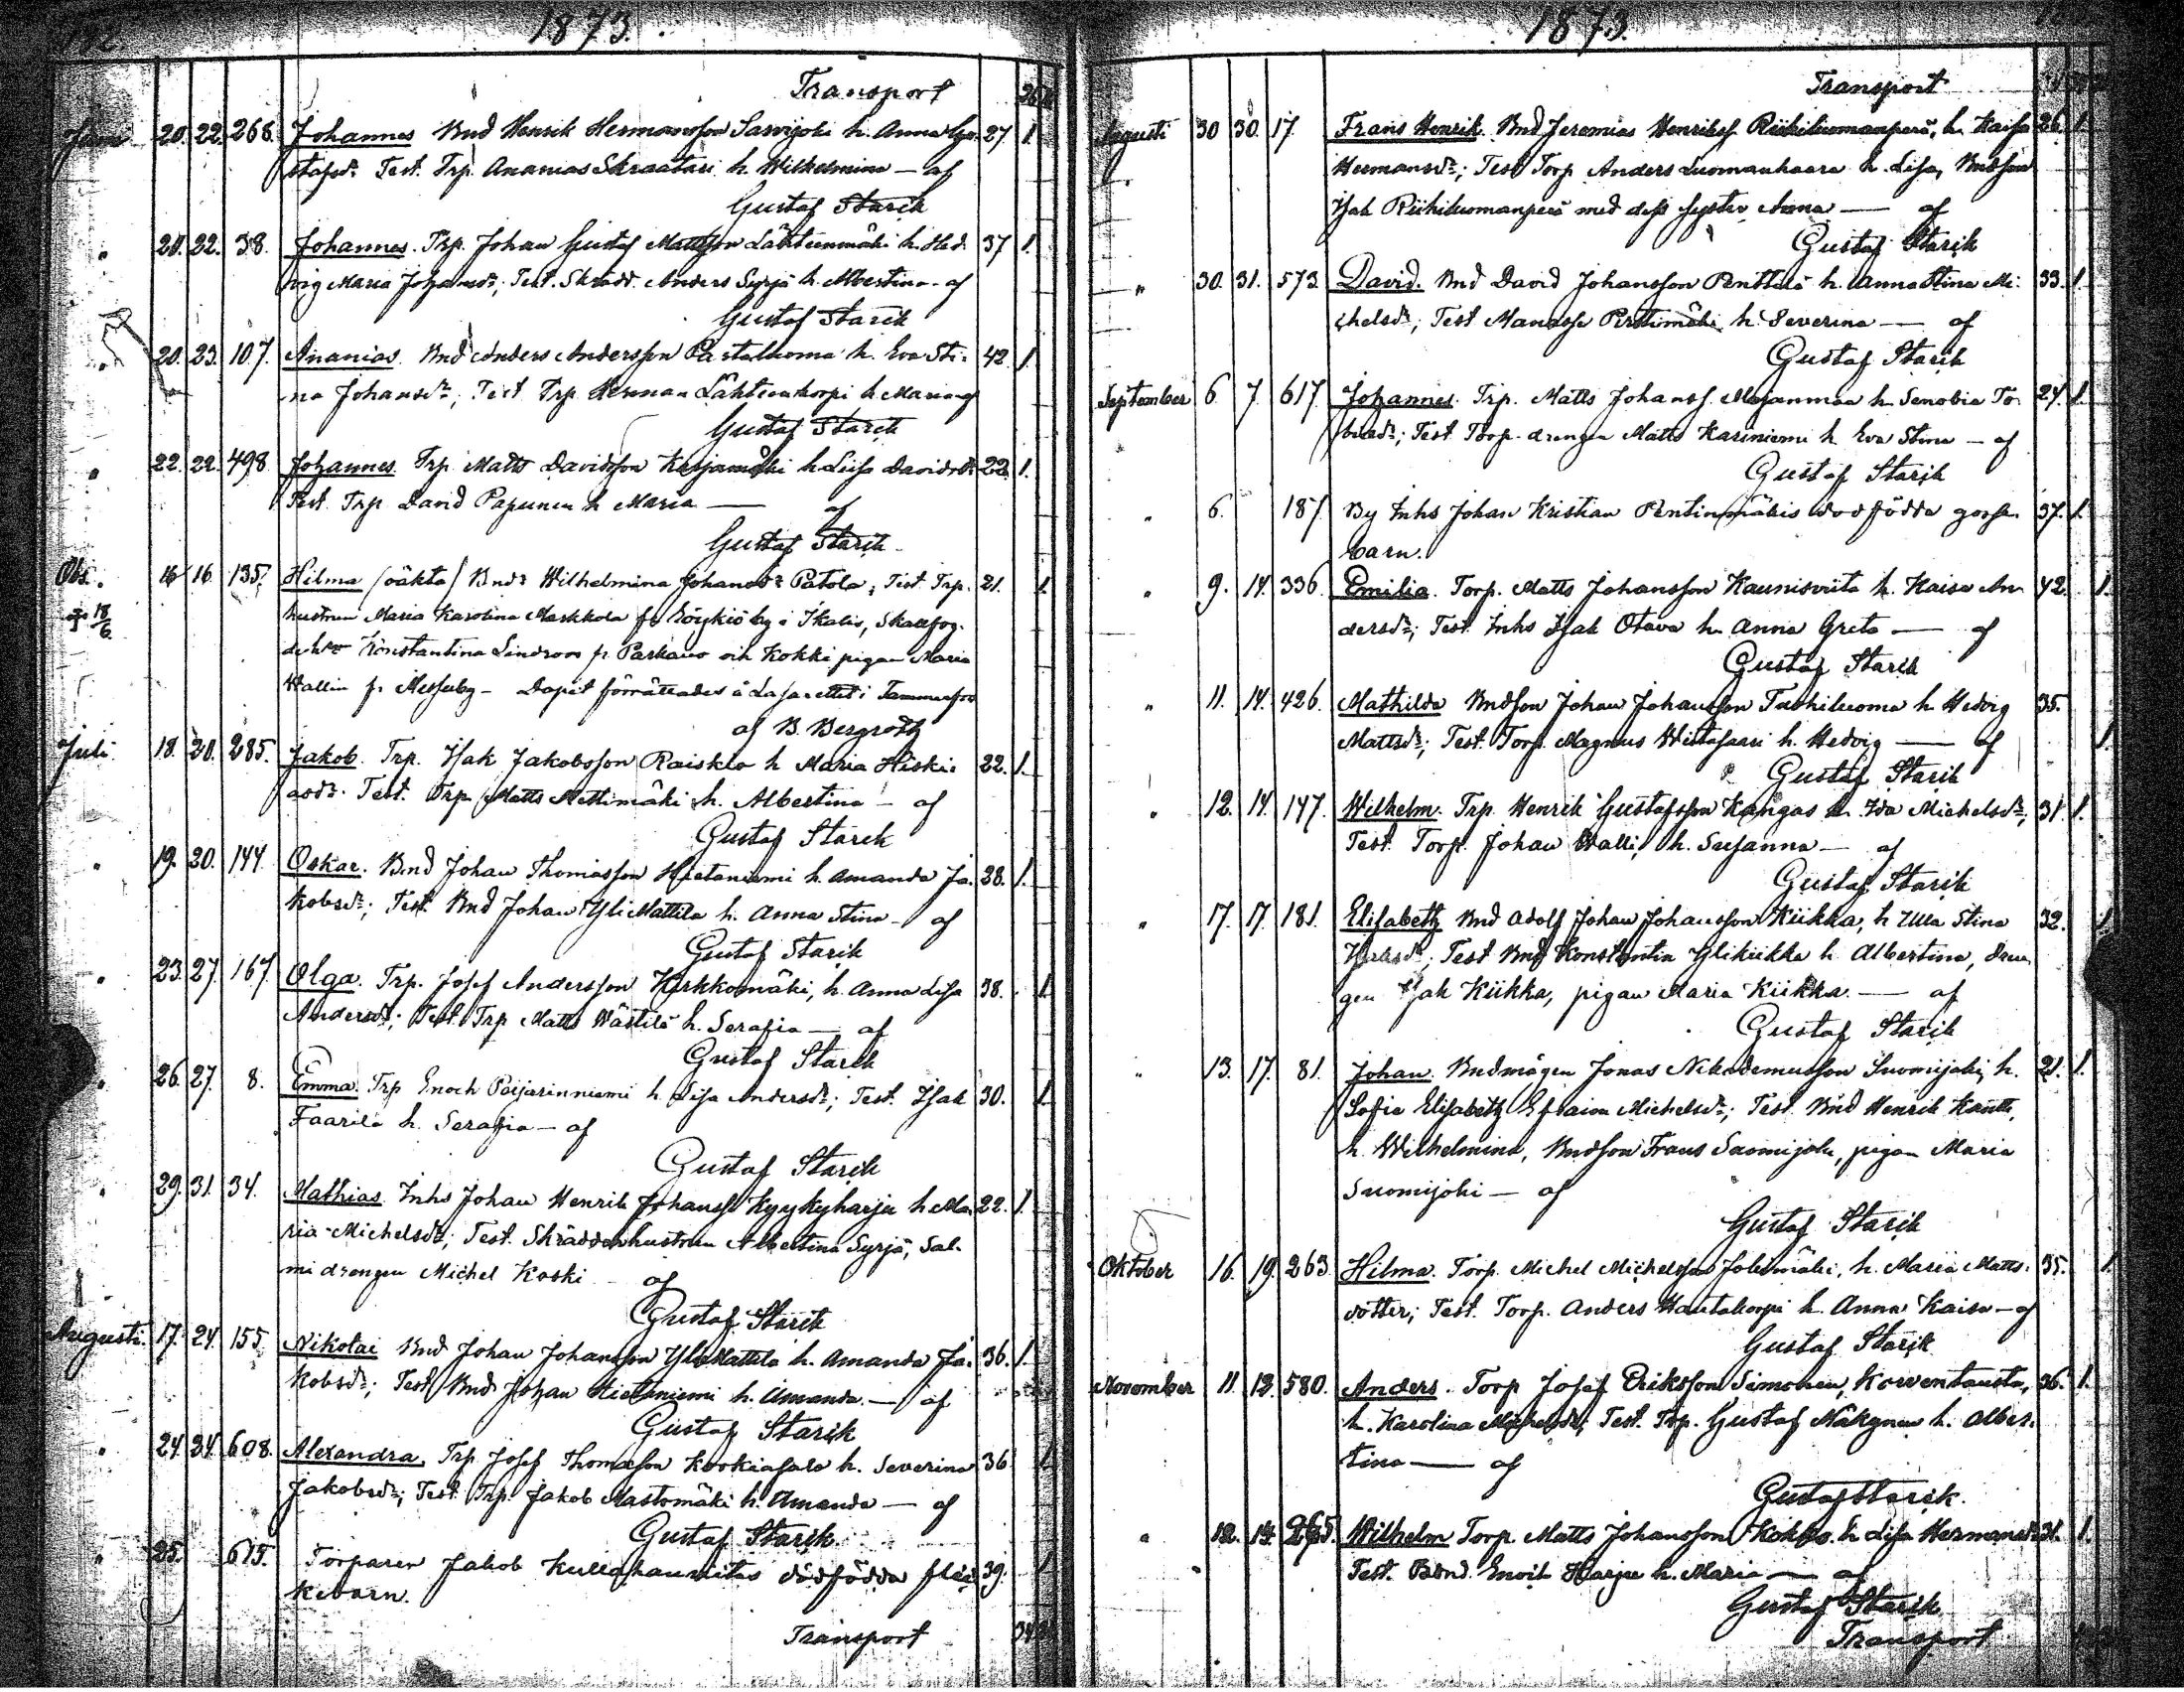 1873.
Transport
Juni 20. 22. 268. Johannes Bnd Henrik Hermansson Sarvijoki h. Anna Gu- 27 1
stafsdr. Test. Trp. Ananias Skraatari h. Wilhelmina — af
Gustaf Starck
" 20. 22. 38. Johannes. Trp. Johan Gustaf Mattsson Lähteenmäki h. Hed- 37 1.
vig Maria Johansdr; Test. Skrädd. Anders Syrjä h. Albertina - af
Gustaf Starck
20. 23. 107. Ananias. Bnd Anders Andersson Pastaluoma h. Eva Sti- 42 1.
na Johansdr; Test Trp Herman Lähteenkorpi h. Maria - af
Gustaf Starck
" 22. 22. 498 Johannes. Trp. Matts Davidsson h. Lisa Davidsdr 22 1.
Test. Trp. David Papunen h Maria — af
Gustaf Starck
Obs. 16 16. 135. Hilma (oäkta) Bndr Wilhelmina Johansdr Patola; Test. Trp. 21. 1.
† 18/6 hustrun Maria Karolina Markkola fr Röykiö by i Ikalis, Skallfog-
Konstantina Lindroos fr. Parkano och Kokki pigan Maria
Wallin fr Messuby - Dopet förrättades å Lasarettet i Tammerfors
af B. Bergroth
Juli 18. 20. 285. Jakob. Trp. Isak Jakobsson Raiskio h Maria Hiski- 22. 1.
asdr. Test. Trp Matts Mettimäki h. Albertina — af
Gustaf Starck
" 19. 20. 144. Oskar. Bnd Johan Thomasson Hietaniemi h. Amanda Ja- 28. 1.
kobsdr; Test. Bnd Johan YliMattila h. Anna Stina — af
Gustaf Starck
" 23. 27. 167. Olga. Trp. Josef Andersson Kirkkomäki, h. Anna Lisa 38. 1
Andersdr; Test. Trp Matts Wästilä h. Serafia — af
Gustaf Starck
" 26. 27. 8. Emma. Trp Enoch Poijarinniemi h. Lisa Andersdr; Test. Isak 30. 1
Faarila h. Serafia — af
Gustaf Starck
" 29. 31. 34. Mathias Inhs Johan Henrik Johanss. Kyykyharju h. Ma- 22. 1.
ria Michelsdr; Test. Skräddarhustrun Albertina Syrjä, Sal-
mi drengen Michel Koski — af
Gustaf Starck
Augusti. 17. 24. 155. Nikolai Bnd Johan Johansson YliMattila h. Amanda Ja- 36. 1.
kobsdr; Test. Bnd Johan Hietaniemi h. Amanda. — af
Gustaf Starck
" 24. 24. 608. Alexandra. Trp Josef Thomasson h. Severina 36 1
Jakobsdr; Test. Trp. Jakob Mastomäki h. Amanda — af
Gustaf Starck
" 25. 615. Torparen Jakob dödfödda flic- 39. 1
kebarn.
Transport
1873.
Transport
Augusti 30 30. 17. Frans Henrik. Bnd Jeremias Henrikss. Riihiluomanperä, h. Kaisa 26. 1.
Hermansdr; Test Torp Anders Luomanhaara h. Lisa, Bndson
Isak Riihiluomanperä med dess syster Anna — af
Gustaf Starck
" 30. 31. 573 David. Bnd David Johansson Penttilä h. Anna Stina Mi- 33. 1.
chelsdr; Test Manasse Pirttimäki h. Severina — af
Gustaf Starck
September 6. 7. 617. Johannes. Trp. Matts Johanss. Majanmaa h. Senobia To- 24. 1.
biasdr; Test. Torp. drengen Matts Kariniemi h. Eva Stina — af
Gustaf Starck
" 6. 187. By Inhs Johan Kristian Pentinmäkis dödfödda gosse- 37. 1.
barn.
" 9. 14. 336. Emilia. Torp. Matts Johansson Kaunisviita h. Kaisa An- 42. 1.
dersdr; Test. Inhs Isak Otava h. Anna Greta — af
Gustaf Starck
" 11. 14. 426. Mathilda Bndson Johan Johansson h. Hedvig 35.
Mattsdr; Test. Torp. Magnus h. Hedvig — af 1.
Gustaf Starck
" 12. 14. 147. Wilhelm. Trp. Henrik Gustafsson Kangas h. Ida Michelsdr; 31. 1.
Test. Torp. Johan Walli, h. Susanna — af
Gustaf Starck
" 17. 17. 181. Elisabeth Bnd Adolf Johan Johansson Kiikka, h. Ulla Stina 32. 1
Test Bnd Konstantin Ylikiikka h. Albertina, dren-
gen Isak Kiikka, pigan Maria Kiikka. — af
Gustaf Starck
" 13. 17. 81. Johan. Bndmågen Jonas Nikodemusson Suomijoki, h. 21. 1.
Sofia Elisabeth Efraim Michelsdr; Test. Bnd Henrik Knutti,
h. Wilhelmina, Bndson Frans Suomijoki, pigan Maria
Suomijoki — af
Gustaf Starck
Oktober 16. 19. 263 Hilma. Torp. Michel Michelsson h. Maria Matts- 35. 1.
dotter; Test. Torp. Anders Hautakorpi h. Anna Kaisa — af
Gustaf Starck
November 11. 12. 580. Anders. Torp Josef Eriksson Simonen, Korventausta, 36. 1.
h. Karolina Michelsdr; Test. Trp. Gustaf Näkynen h. Alber-
tina — af
Gustaf Starck.
" 12. 14. 265. Wilhelm Torp. Matts Johansson Kokko h. Lisa Hermansdr 31. 1.
Test. Bnd. Enoch Harju h. Maria — af
Gustaf Starck
Transport